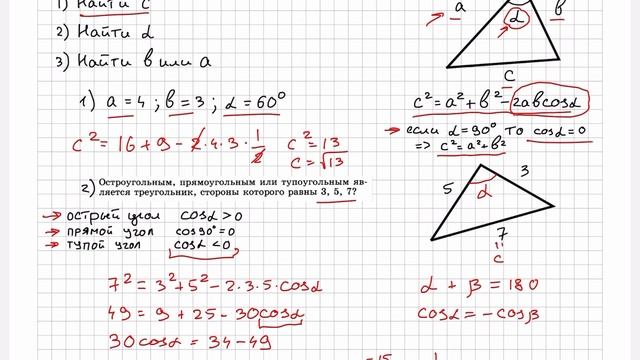 1) Найти c
2) Найти α
3) Найти в или a
a
в
α
c
1) a = 4 ; в = 3 ; α = 60°
c² = 16 + 9 - 2·4·3·1/2
c² = 13
c = √13
c² = a² + в² - 2aвcosα
если α = 90° то cosα = 0
=> c² = a² + в²
2) Остроугольным, прямоугольным или тупоугольным яв-
ляется треугольник, стороны которого равны 3, 5, 7?
острый угол cosα > 0
прямой угол cos90° = 0
тупой угол cosα < 0
5
3
α
7
c
7² = 3² + 5² - 2·3·5·cosα
49 = 9 + 25 - 30cosα
30cosα = 34 - 49
α + β = 180
cosα = -cosβ
-15
1